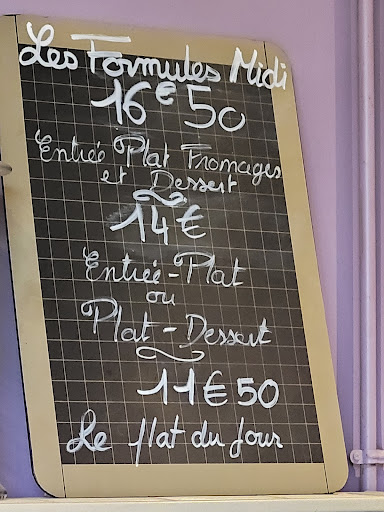 Les Formules Midi
16€50
Entrée Plat Fromages
et Dessert
14€
Entrée-Plat
ou
Plat-Dessert
11€50
Le plat du jour